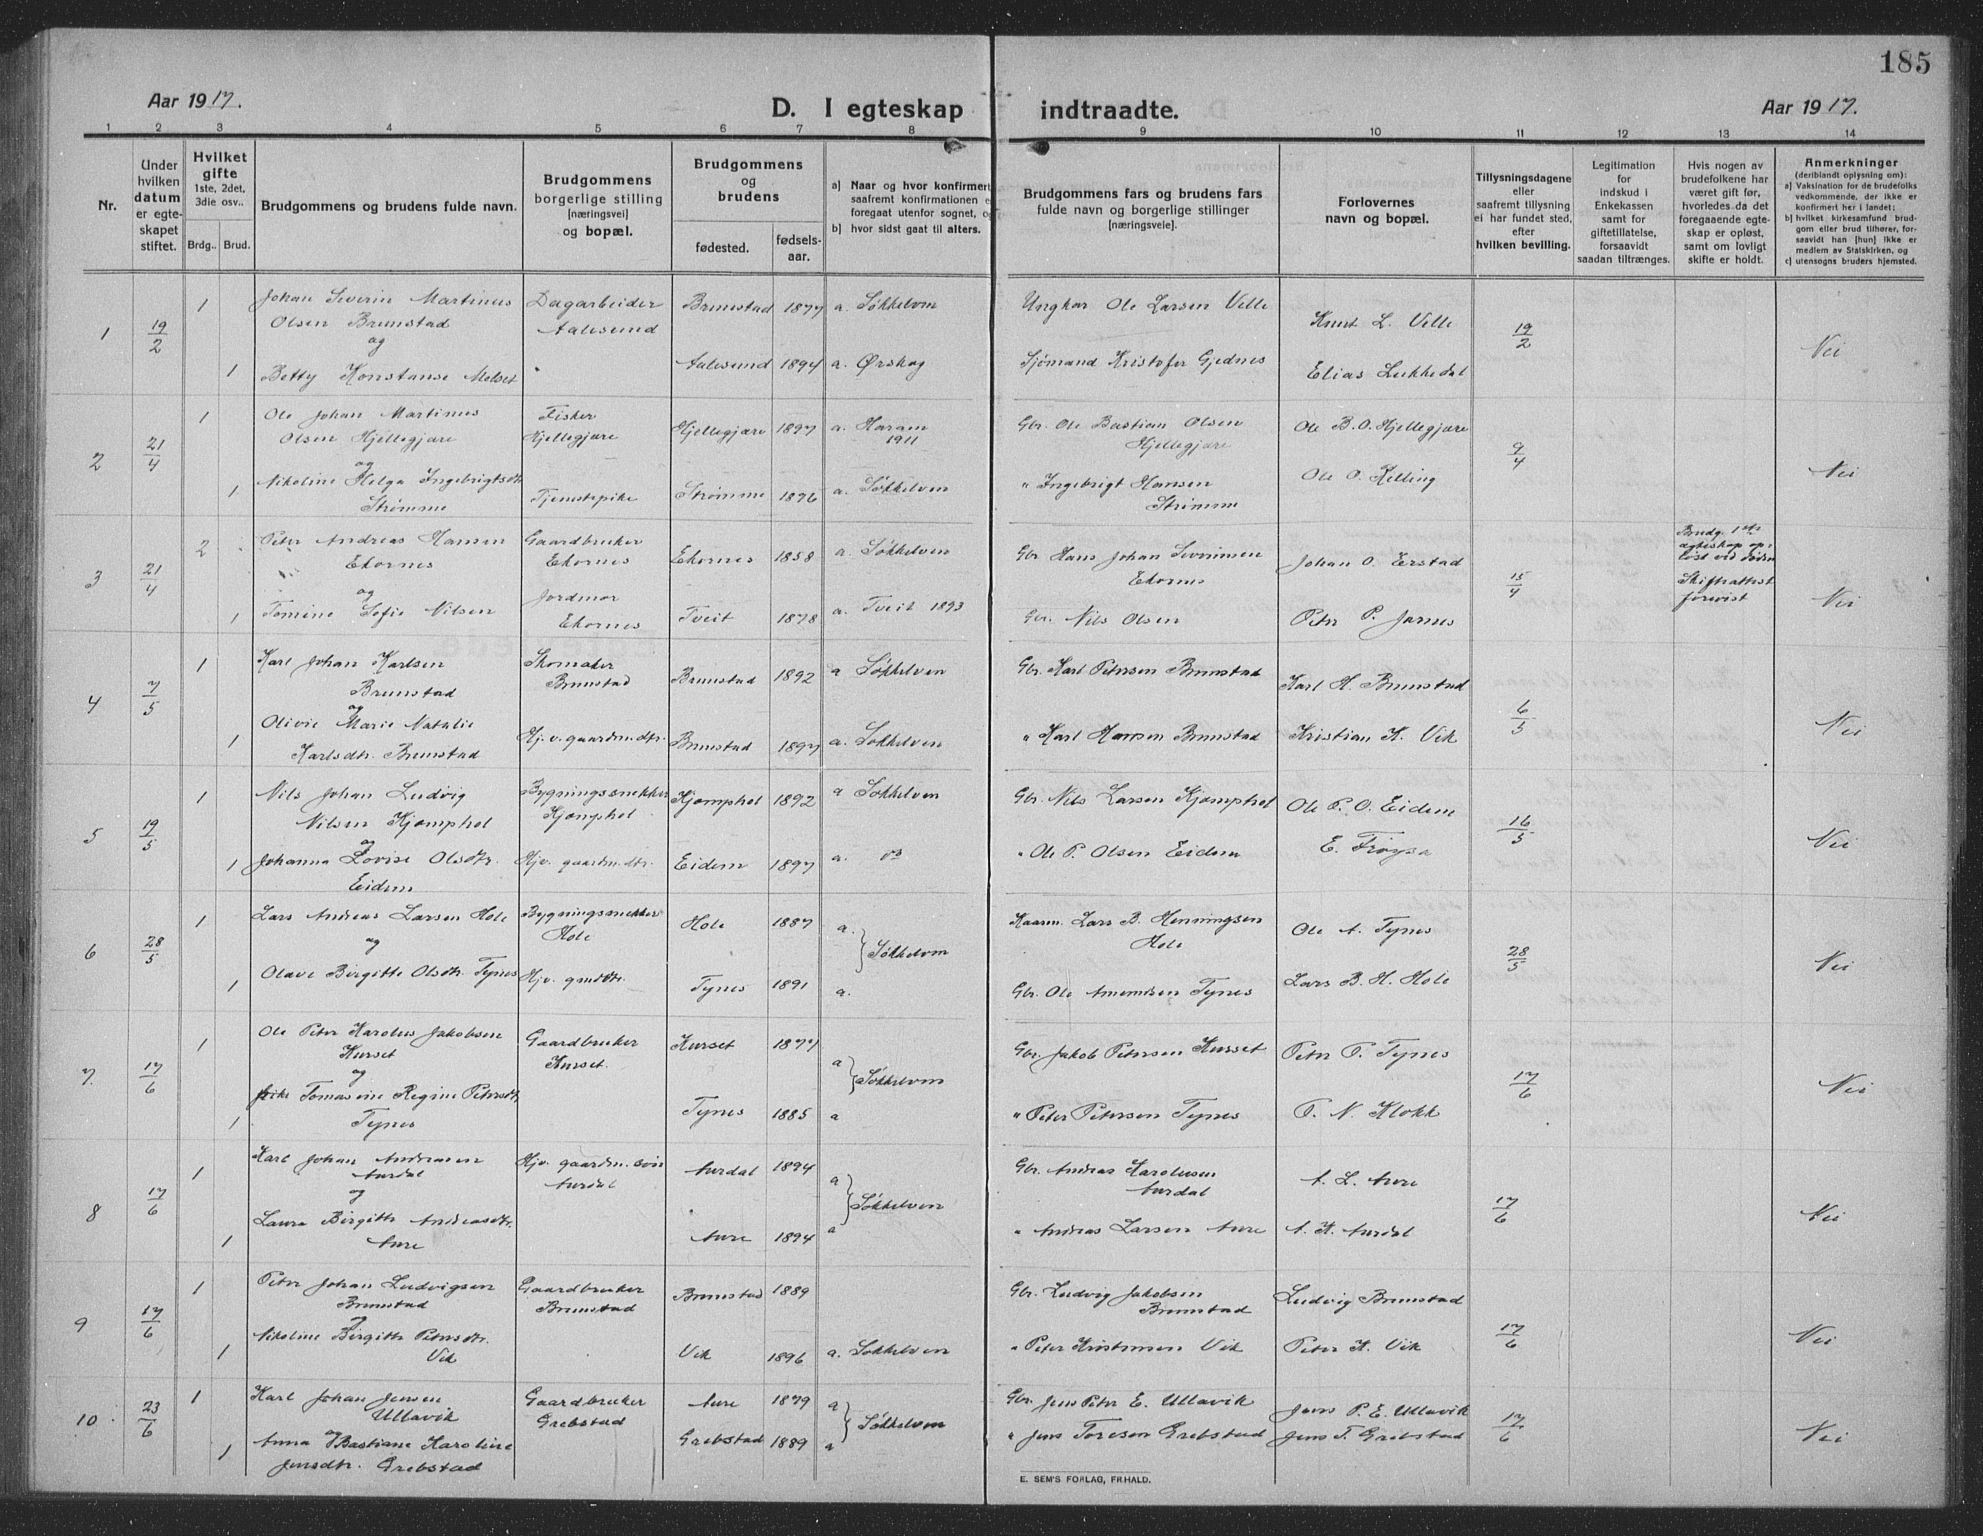 185
Aar 1917.
D. I egteskap indtraadte.
Aar 1917.
1 2 3 4 5 6 7 8 9 10 11 12 13 14
Nr.
Under hvilken datum er egte-skapet stiftet.
Hvilket gifte 1ste, 2det, 3die osv..
Brdg.. Brud.
Brudgommens og brudens fulde navn.
Brudgommens borgerlige stilling [næringsvei] og bopæl.
Brudgommens og brudens
fødested.
fødsels-aar.
a) Naar og hvor konfirmert
saafremt konfirmationen e
foregaat utenfor sognet, o
b) hvor sidst gaat til alters.
Brudgommens fars og brudens fars
fulde navn og borgerlige stillinger
[næringsveie].
Forlovernes
navn og bopæl.
Tillysningsdagene
eller
saafremt tillysning
ei har fundet sted,
efter
hvilken bevilling.
Legitimation
for
indskud i
Enkekassen
samt for
giftetillatelse,
forsaavidt
saadan tiltrænges.
Hvis nogen av
brudefolkene har
været gift før,
hvorledes da det
foregaaende egte-
skap er opløst,
samt om lovligt
skifte er holdt.
Anmerkninger
(deriblandt oplysning om):
a) Vaksination for de brudefolks
vedkommende, der ikke er
konfirmert her i landet;
b) hvilket kirkesamfund brud-
gom eller brud tilhører, for-
saavidt han [hun] ikke er
medlem av Statskirken, og
c) utensogns bruders hjemsted.
1 19/2 1 Johan Severin Martinus Dagarbeider Brunstad 1877 a. Søkkelven Ungkar Ole Larsen Velle Knut L. Velle 19/2 Nei
Olsen Brunstad Aalesund
og
1 Betty Konstanse Melset Aalesund 1894 a. Ørskog Sjømand Kristofer Gjednes Elias Lukkedal
2 21/4 1 Ole Johan Martinus Fisker Hjellegjære 1897 a. Haram Gbr. Ole Bastian Olsen Ole B. O. Hjellegjære 9/4 Nei
Olsen Hjellegjære Hjellegjære 1911 Hjellegjære
og
1 Nikoline Helga Ingebrigtsdtr. Tjenestepike Strømme 1896 a. Søkkelven " Ingebrigt Hansen Ole O. Relling
Strømme Strømme
3 21/4 2 Peter Andreas Hansen Gaardbruker Ekornes 1858 a. Søkkelven Gbr. Hans Johan Severinsen Johan O. Erstad 15/4 Brudg. 1ste Nei
Ekornes Ekornes Ekornes egteskap op-
og Jordmor løst ved døden
1 Tomine Sofie Nilsen Ekornes Tveit 1878 a. Tveit 1893 Gbr. Nils Olsen Petr P. Jarnes Skifteattest
forevist
4 7/5 1 Karl Johan Karlsen Skomaker Brunstad 1892 a Søkkelven Gbr. Karl Petersen Brunstad Karl H. Brunstad 6/5 Nei
Brunstad Brunstad
og
1 Olivie Marie Natalie Hj. v. gaardm. dtr. Brunstad 1897 a. Søkkelven " Karl Hansen Brunstad Kristian K. Vik
Karlsdtr. Brunstad
5 19/5 1 Nils Johan Ludvig Bygningssnekker Kjømphol 1892 a Søkkelven Gbr. Nils Larsen Kjømphol Ole P. O. Eidem 16/5 Nei
Nilsen Kjømphol Kjømphol
og
1 Johanna Lovise Olsdtr. Hjv. gaardm. dtr. Eidem 1897 a. " Ole P. Olsen Eidem E. Frøysa
Eidem
6 28/5 1 Lars Andreas Larsen Hole Bygningssnekker Hole 1887 a. Søkkelven Kaarm. Lars B. Henningsen Ole A. Tynes 28/5 Nei
og Hole Hole
1 Olave Birgitte Olsdtr. Tynes Hjv. gmdtr. Tynes 1891 a. Gbr. Ole Amundsen Tynes Lars B. H. Hole
7. 17/6 1 Ole Peter Karolus Jakobsen Gaardbruker Kurset 1877 a Søkkelven Gbr. Jakob Petersen Kurset Petr P. Tynes 17/6 Nei
Kurset Kurset.
og
1 Tomasine Regine Petersdtr. Tynes 1885 a " Peter Petersen Tynes P. N. Klokk
Tynes
8 17/6 1 Karl Johan Andreasen Hjv. gaardm. søn Aurdal 1894 a Søkkelven Gbr. Andreas Karolusen A. L. Aure 17/6 Nei
Aurdal Aurdal Aurdal
og
1 Laura Birgitte Andreasdtr. Aure 1894 a " Andreas Larsen Aure A. K. Aurdal
Aure
9 17/6 1 Petr Johan Ludvigsen Gaardbruker Brunstad 1889 Gbr. Ludvig Jakobsen Ludvig Brunstad 17/6 Nei
Brunstad Brunstad Brunstad
og
1 Nikoline Birgitte Petersdtr. Vik 1896 a. Søkkelven " Peter Kristensen Vik Petr K. Vik
Vik
10 23/6 1 Karl Johan Jensen Gaardbruker Aure 1879 a Søkkelven Gbr. Jens Peter E. Ullavik Jens P. E. Ullavik 17/6 Nei
Ullavik Grebstad
og
1 Anna Bastiane Karoline Grebstad 1889 a " Jens Toresen Grebstad Jens T. Grebstad
Jensdtr. Grebstad
E. SEM'S FORLAG, FR.HALD.